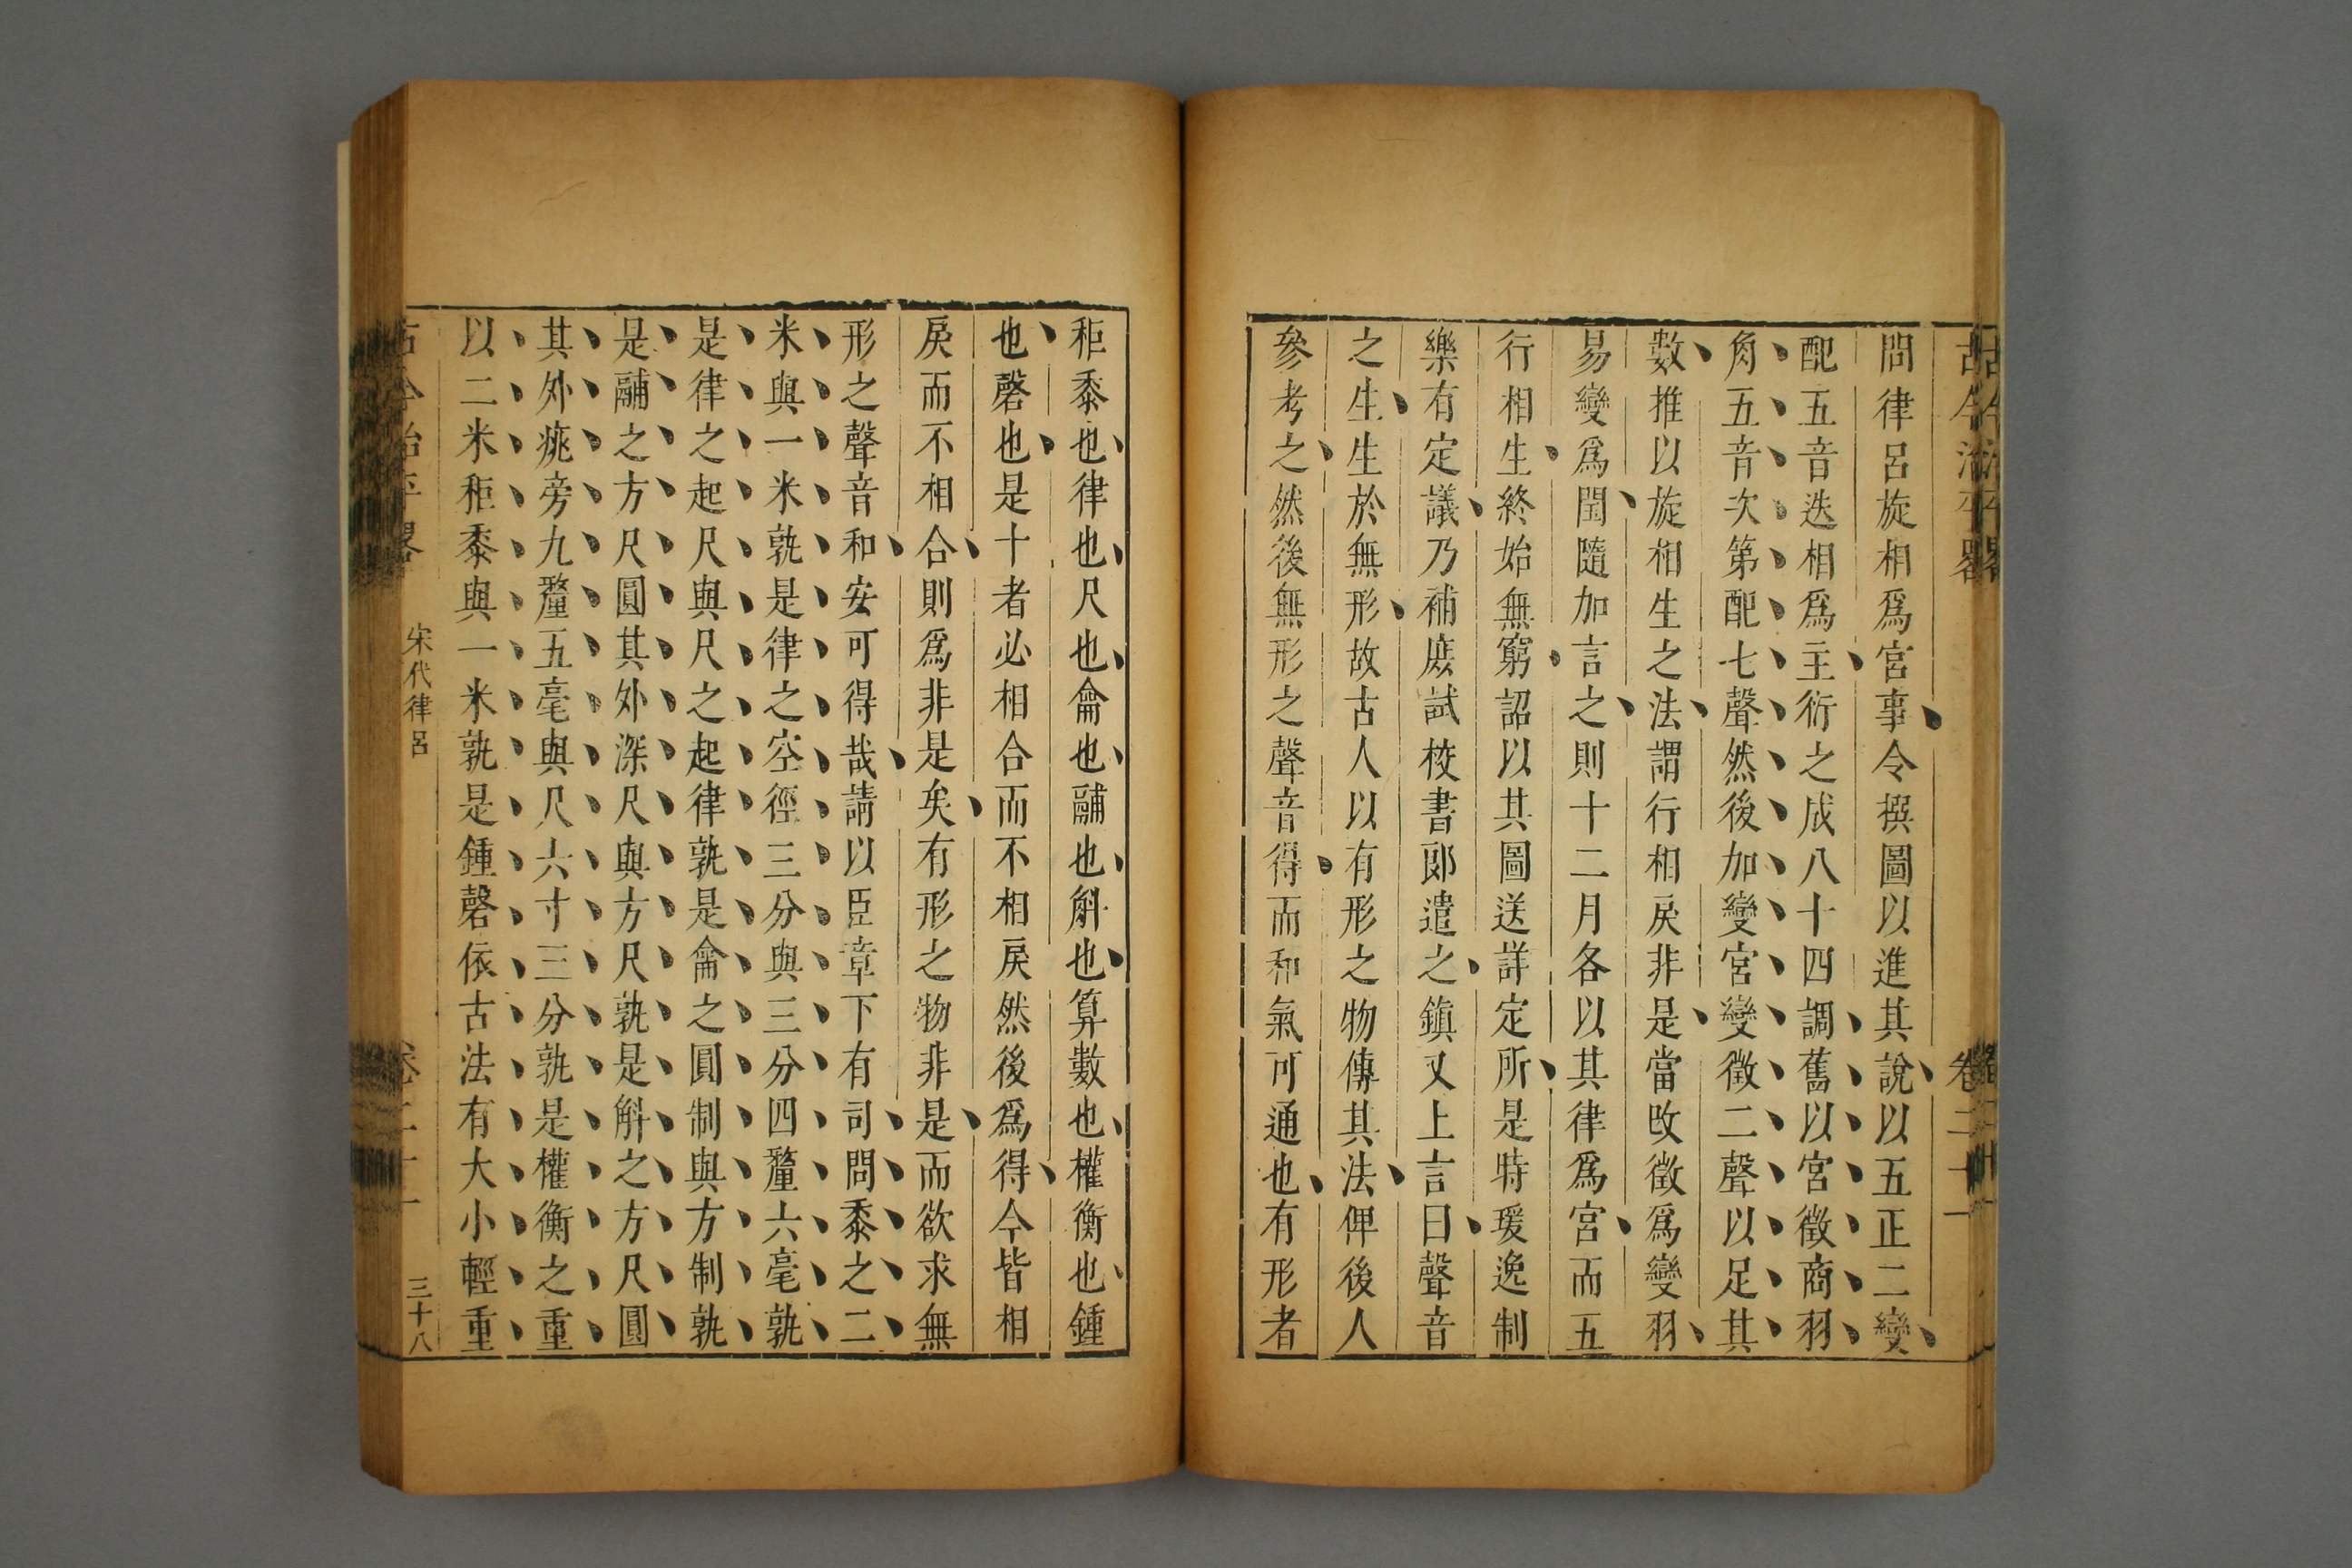 古今治平畧
卷二十一
問律呂旋相爲宮事令撰圖以進其說以五正二變
配五音迭相爲主衍之成八十四調舊以宮徵商羽
角五音次第配七聲然後加變宮變徵二聲以足其
數推以旋相生之法謂行相戾非是當改徵爲變羽
易變爲閏隨加言之則十二月各以其律爲宮而五
行相生終始無窮詔以其圖送詳定所是時瑗逸制
樂有定議乃補庶試校書郎遣之鎮又上言曰聲音
之生生於無形故古人以有形之物傳其法俾後人
參考之然後無形之聲音得而和氣可通也有形者
秬黍也律也尺也龠也鬴也斛也算數也權衡也鍾
也磬也是十者必相合而不相戾然後爲得今皆相
戾而不相合則爲非是矣有形之物非是而欲求無
形之聲音和安可得哉請以臣章下有司問黍之二
米與一米孰是律之空徑三分與三分四釐六毫孰
是律之起尺與尺之起律孰是龠之圓制與方制孰
是鬴之方尺圓其外深尺與方尺孰是斛之方尺圓
其外庣旁九釐五毫與尺六寸三分孰是權衡之重
以二米秬黍與一米孰是鍾磬依古法有大小輕重
古今治平畧
宋代律呂
卷二十一
三十八